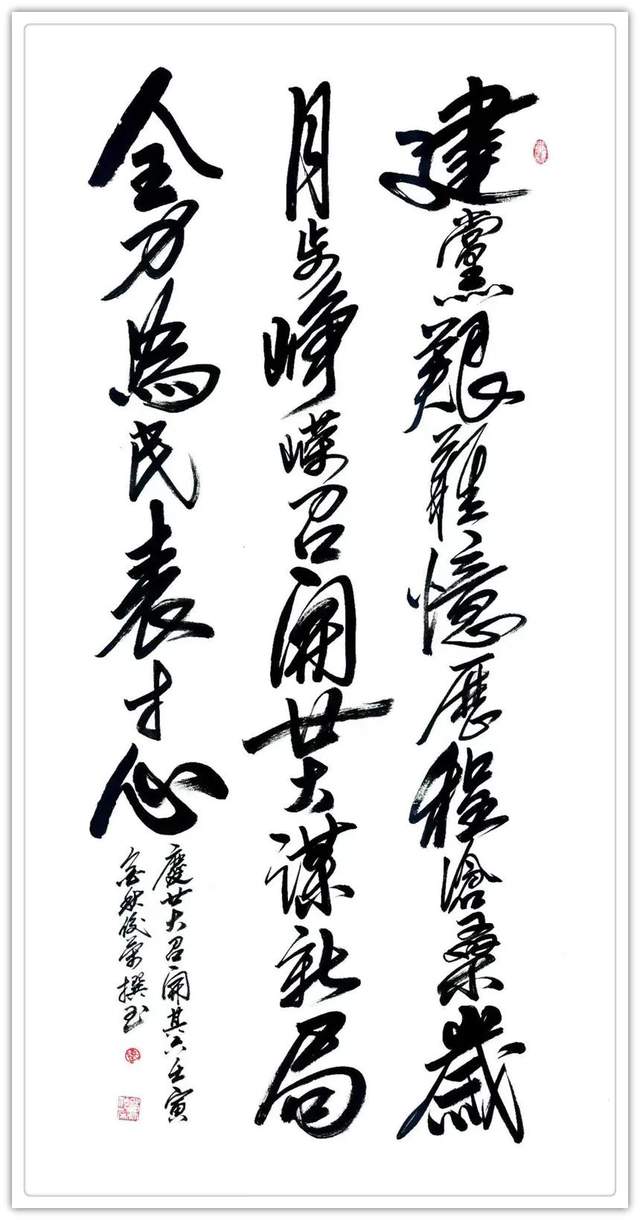 建黨艱難憶歷程滄桑歲
月步崢嶸召開廿大謀新局
全力為民表寸心
慶廿大召開其六壬寅
金秋俊榮撰书